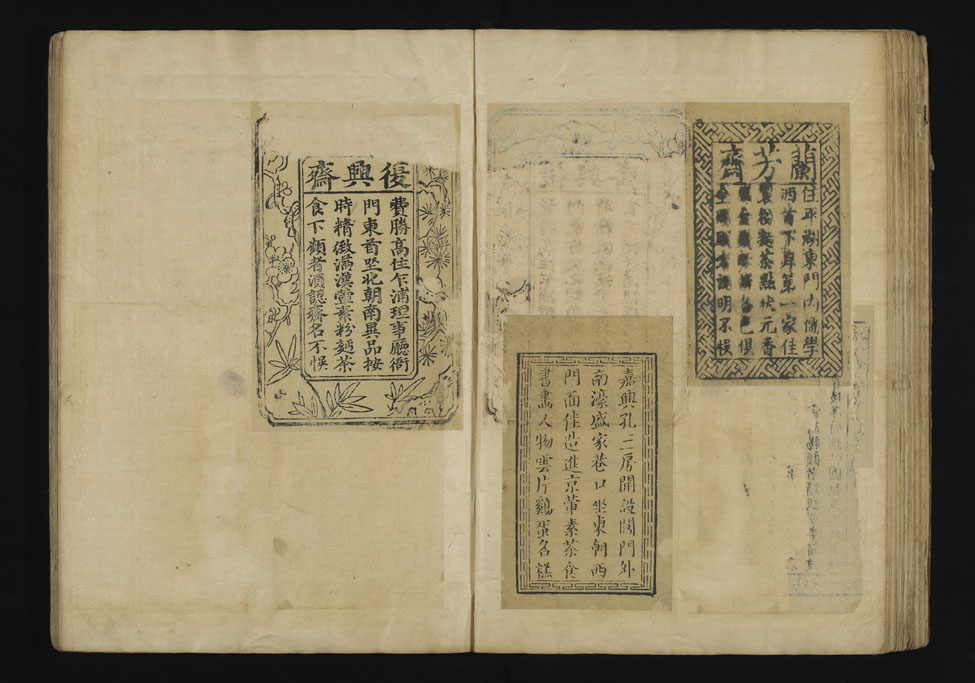 蘭芳齋
住平湖東門内儒學
西首下岸第一家佳
製粉麵茶點状元香
各色俱
全賜顧者認明不悮
嘉興孔三房開設閶門外
南濠盛家巷口坐東朝西
門面佳造進京葷素茶食
書畫人物雲片鷄蛋名糕
復興齋
費勝高住乍浦理事廳衙
門東首坐北朝南異品按
時精做滿漢葷素粉麵茶
食下顧者須認齋名不悮